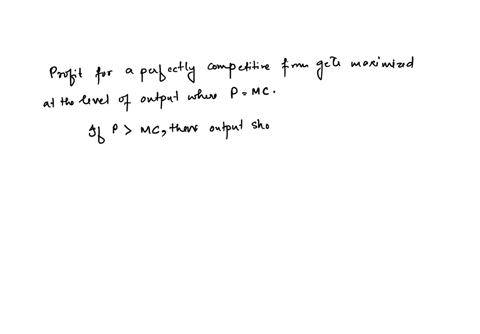 Profit for a perfectly competitive firm gets maximized
at the level of output where P = MC.
If P > MC, then output sho